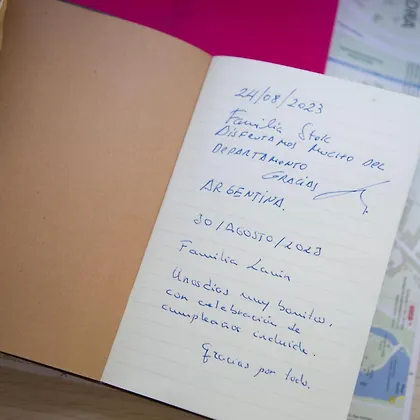 24/08/2023
Familia Stok
DISFRUTAMOS MUCHO DEL
DEPARTAMENTO
GRACIAS
ARGENTINA.
30/AGOSTO/2023
Familia Lavin
Unos dias muy bonitos,
con celebración de
cumpleaños incluida.
Gracias por todo.